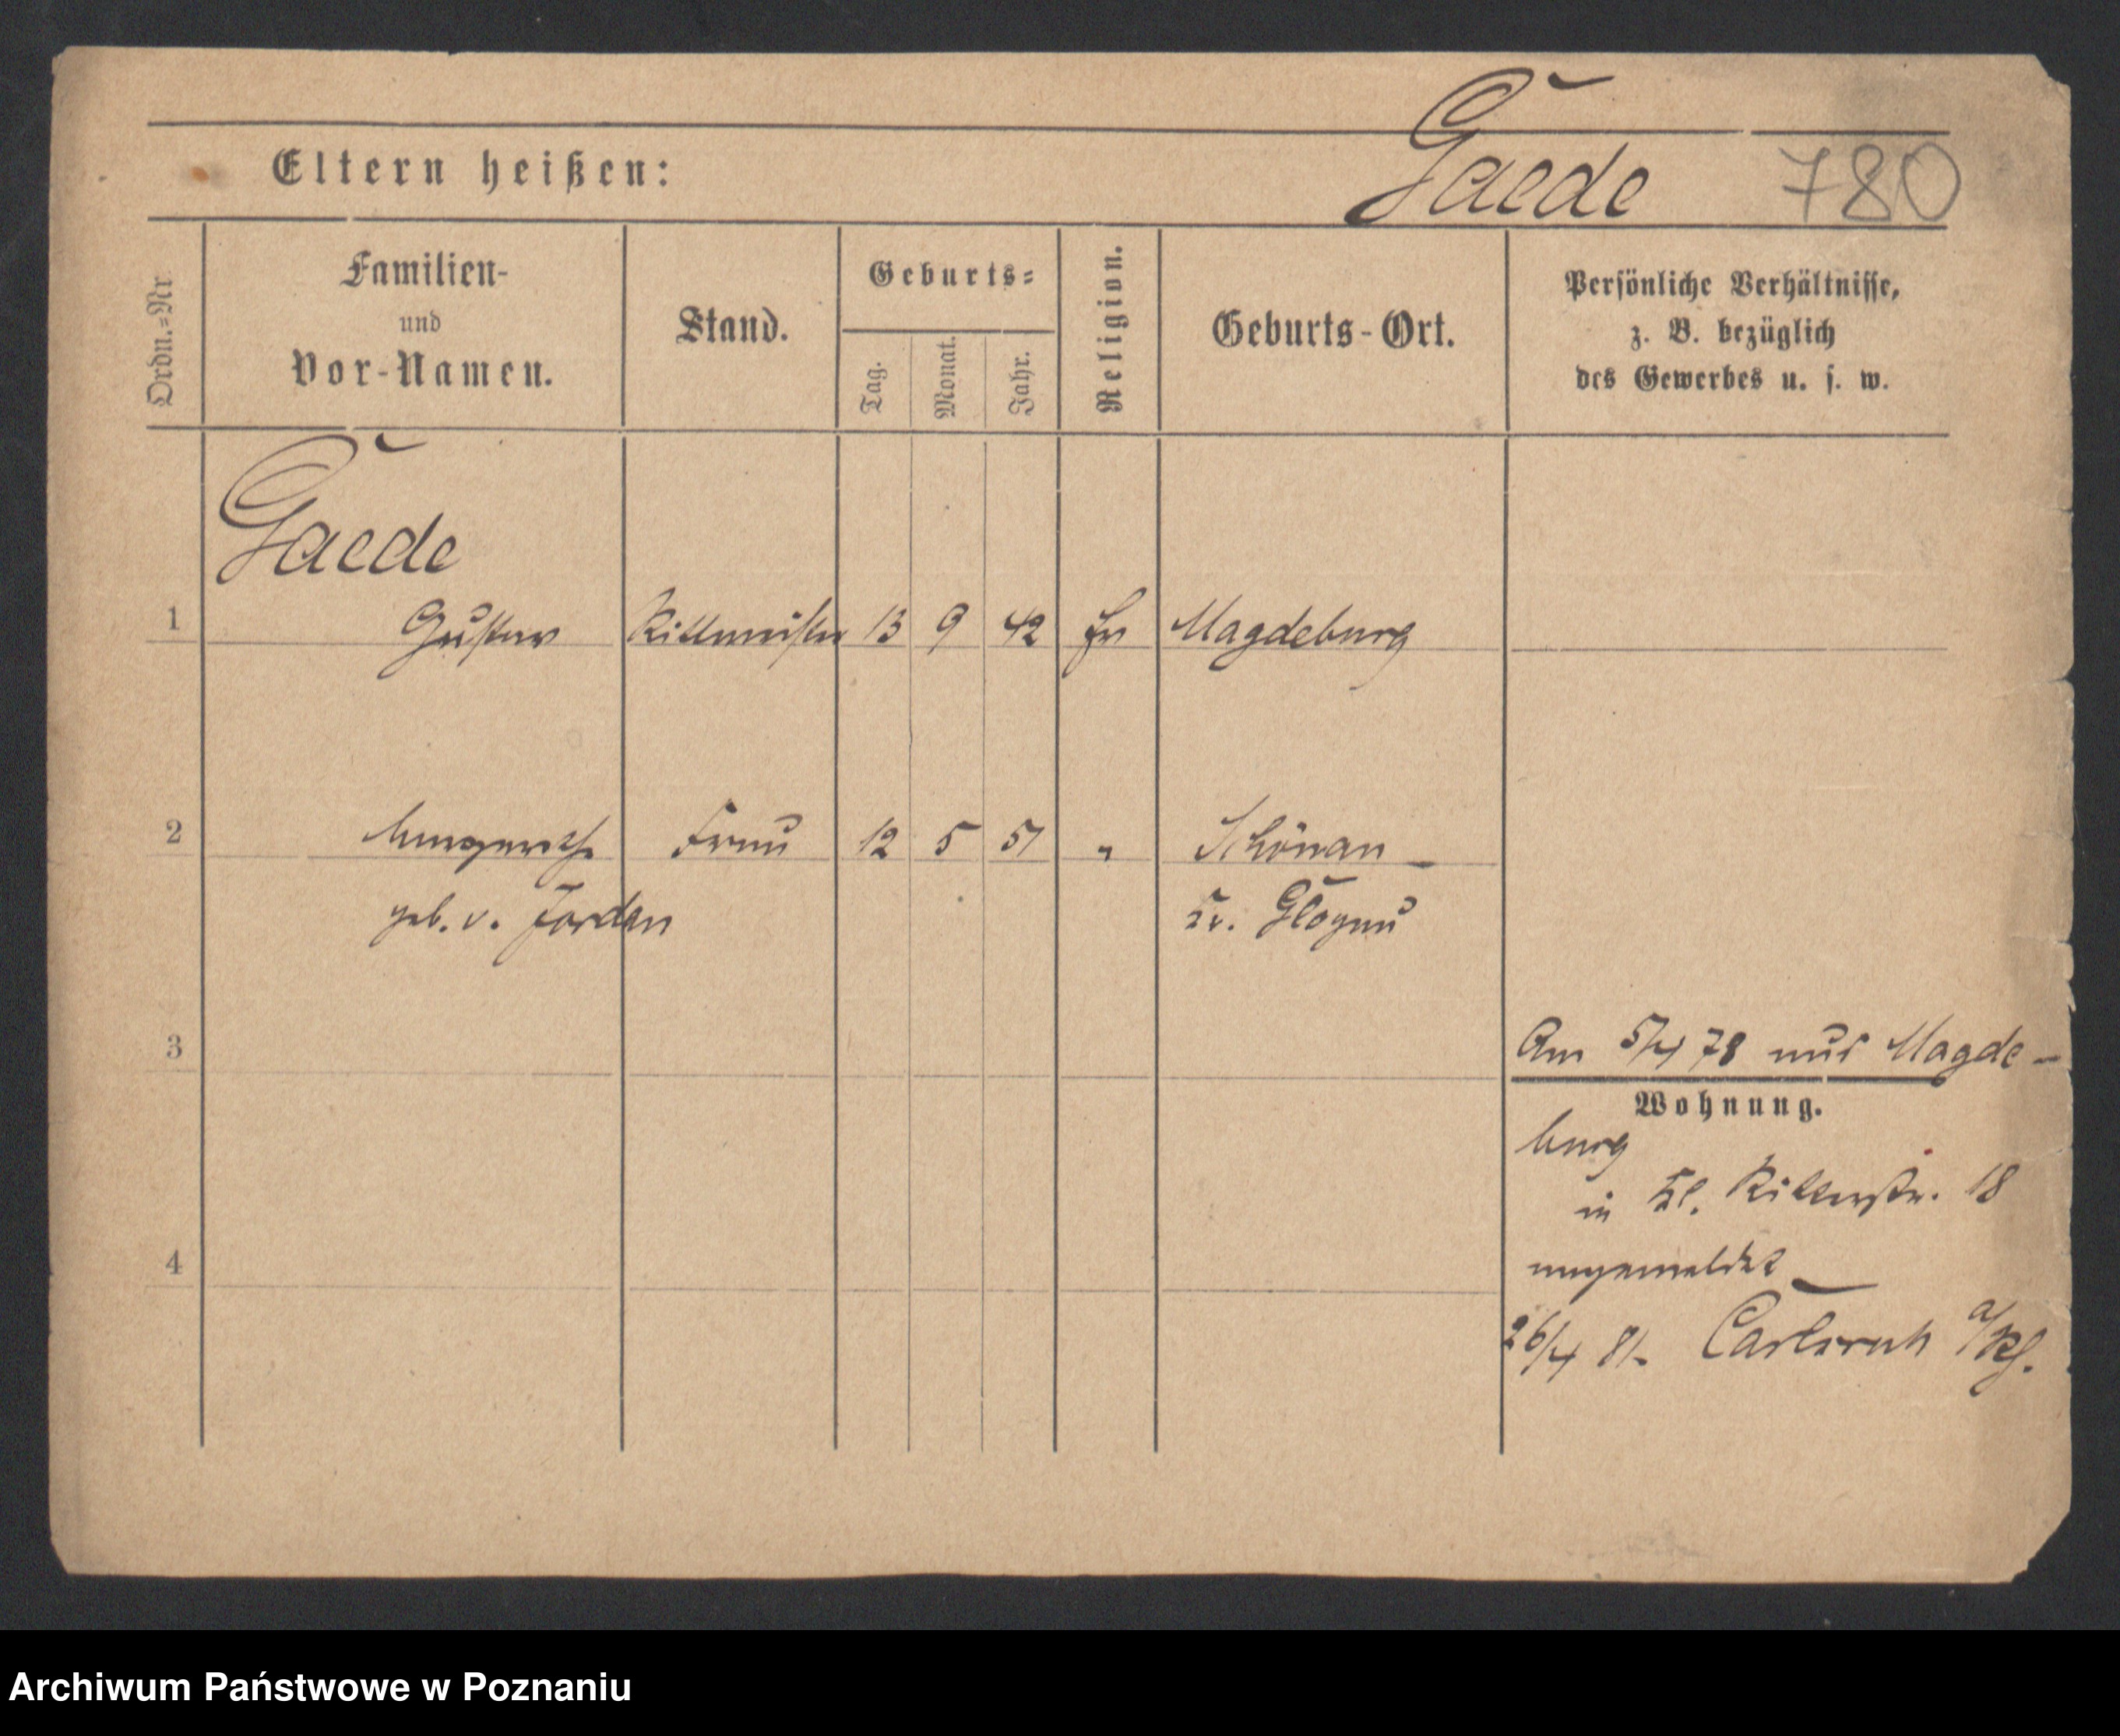 Gaede 780
Eltern heißen:
Ordn.=Nr.
Familien-
und
Vor-Namen.
Stand.
Geburts=
Tag.
Monat.
Jahr.
Religion.
Geburts-Ort.
Persönliche Verhältnisse,
z. B. bezüglich
des Gewerbes u. s. w.
Gaede
1 Gustav Rittmeister 13 9 42 ev Magdeburg
2 Margarethe Frau 12 5 51 " Schönau
geb. v. Jordan Kr. Glogau
3 Am 5/4 78 aus Magde-
Wohnung.
burg
in Kl. Ritterstr. 18
angemeldet
4
26/4 81. Carlsruh
Archiwum Państwowe w Poznaniu